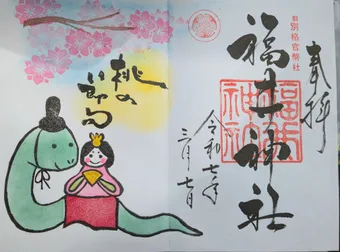 奉拝
別格官幣社
福井神社
福井
神社
令和七年
三月七日
桃の
節句